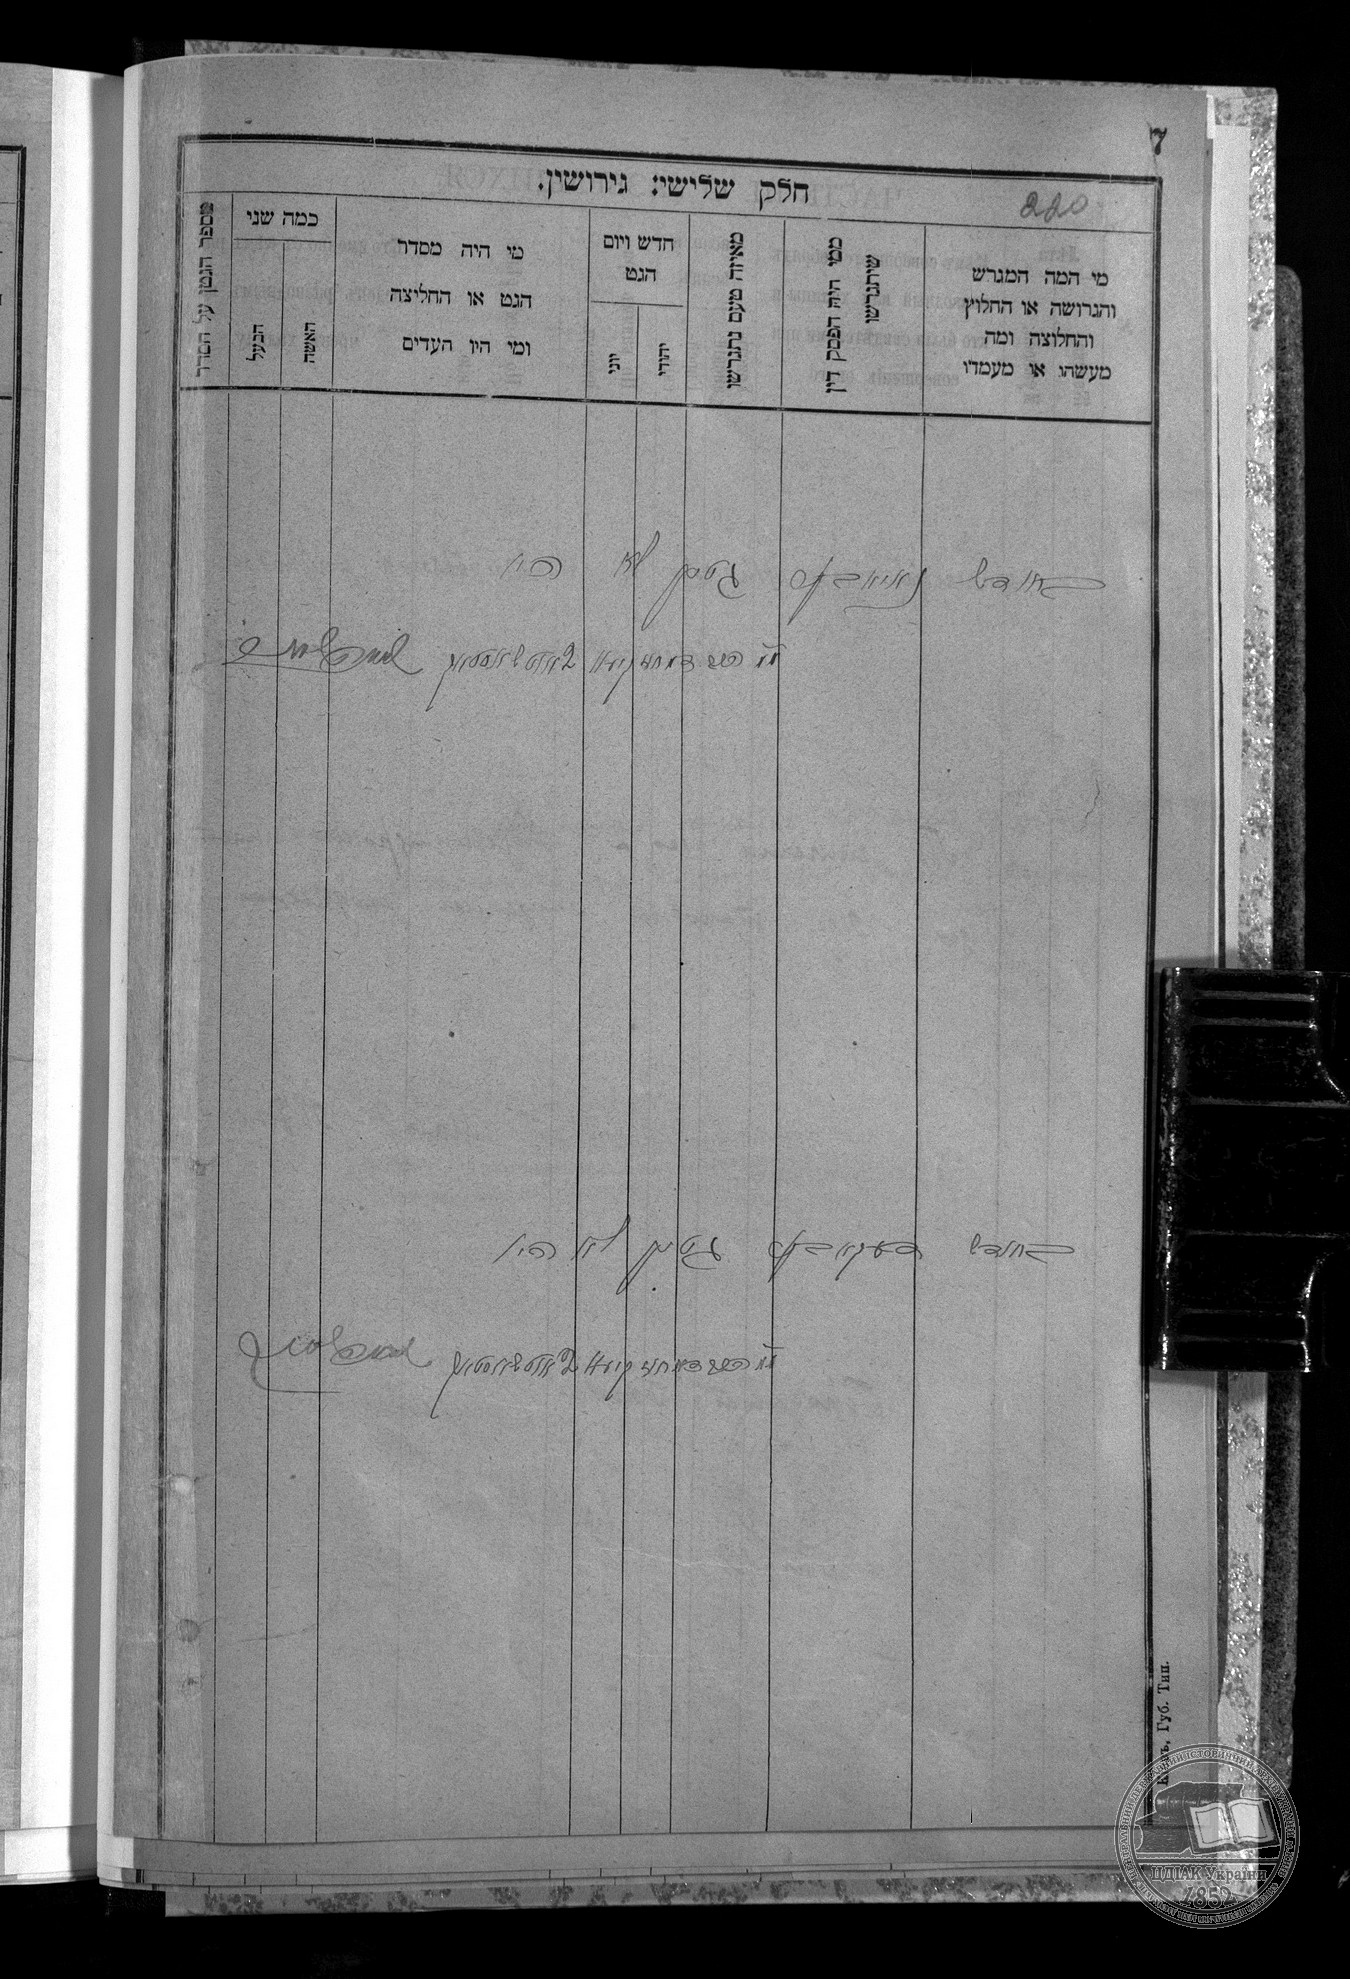 7
220
חלק שלישי: גירושין.
מי המה המגרש
והגרושה או החלוץ
והחלוצה ומה
מעשהו או מעמדו
ממי היה הפסק דין
שיתגרשו
מאיזה טעם נתגרשו
חדש ויום
הגט
יהודי
יוני
מי היה מסדר
הגט או החליצה
ומי היו העדים
כמה שני
האשה
הבעל
מספר הגטין על הסדר
בחודש נאיאבער גיטין לא היו
בחודש דעקאבער גיטין לא היו
Губ. Тип.
ЦДІАК України
1852